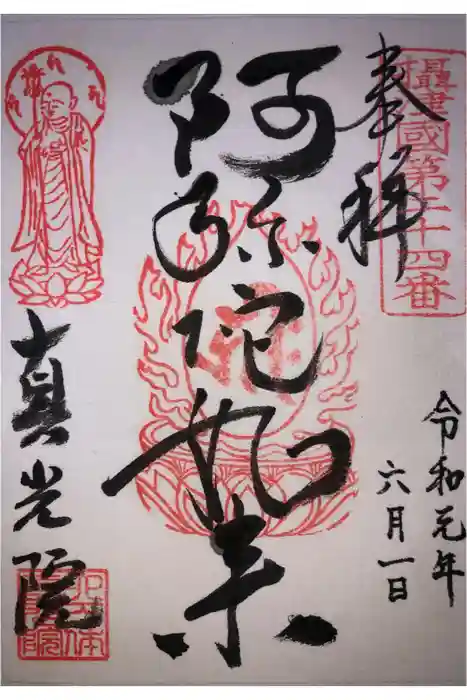 攝津國第三十四番
奉拜
令和元年
六月一日
阿弥陀如来
真光院